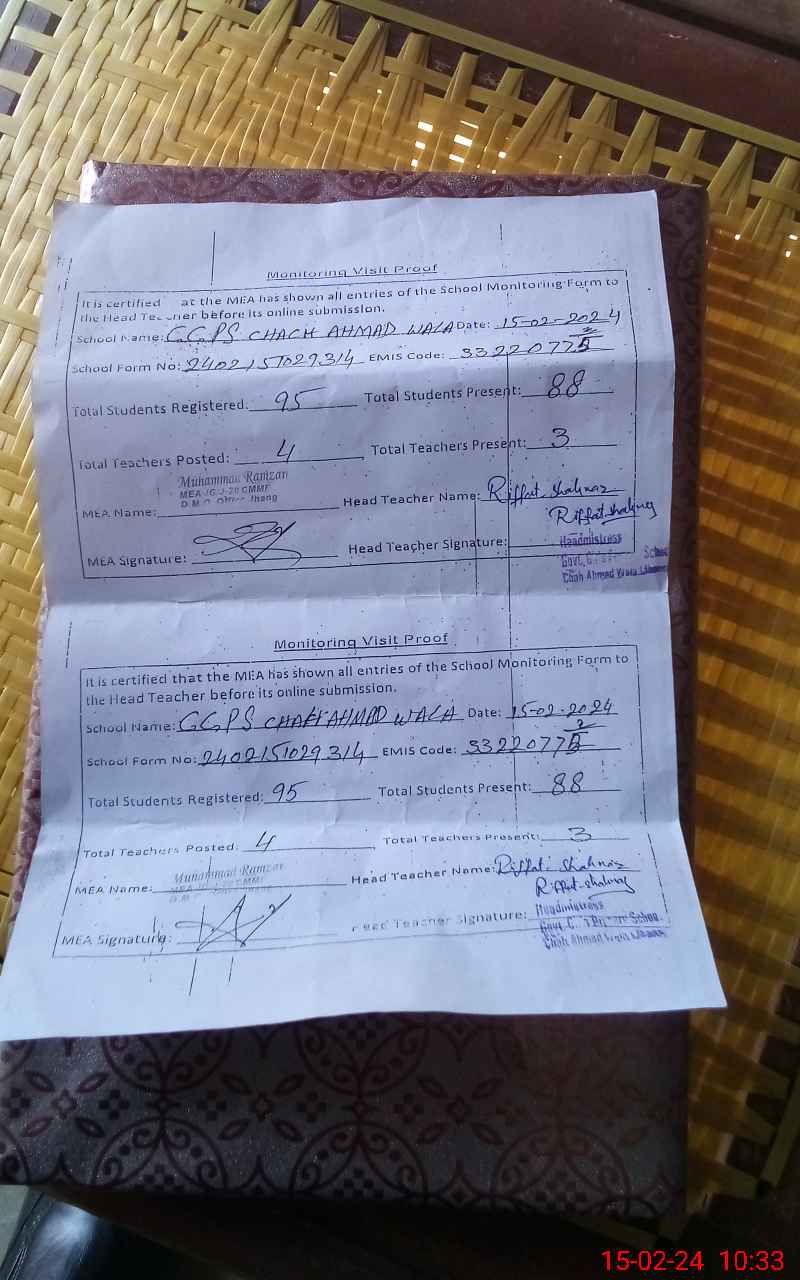 Monitoring Visit Proof
It is certified at the MEA has shown all entries of the School Monitoring Form to
the Head Teacher before its online submission.
School Name: GGPS CHACH AHMAD WALA Date: 15-02-2024
School Form No: 2402151029314 EMIS Code: 33220775 2
Total Students Registered: 95 Total Students Present: 88
Total Teachers Posted: 4 Total Teachers Present: 3
Muhammad Ramzan
MEA CMMF
Jhang
MEA Name: Head Teacher Name: Riffat Shahnaz
Riffat Shahnaz
MEA Signature: Head Teacher Signature:
Headmistress
Govt, School
Chah Ahmad Wala
Monitoring Visit Proof
It is certified that the MEA has shown all entries of the School Monitoring Form to
the Head Teacher before its online submission.
School Name: GGPS CHAH AHMAD WALA Date: 15-02-2024
School Form No: 2402151029314 EMIS Code: 33220775 2
Total Students Registered: 95 Total Students Present: 88
Total Teachers Posted: 4 Total Teachers Present: 3
Muhammad Ramzan
MEA Name: Head Teacher Name: Riffat Shahnaz
Riffat Shahnaz
MEA Signature: Head Teacher Signature:
Headmistress
Govt. School
Chah Ahmad Wala
15-02-24 10:33